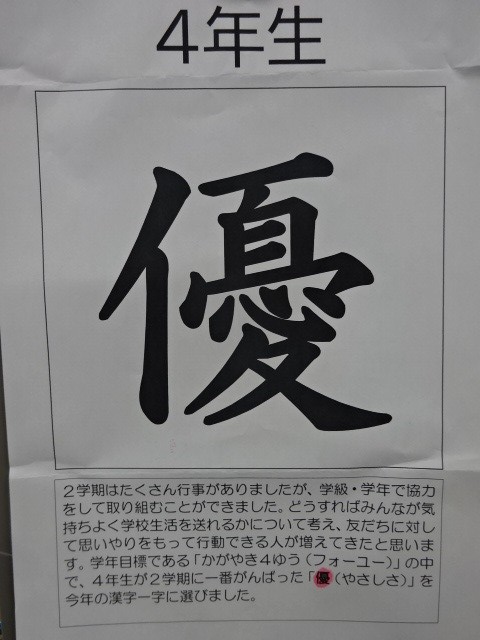 4年生
優
2学期はたくさん行事がありましたが、学級・学年で協力
をして取り組むことができました。どうすればみんなが気
持ちよく学校生活を送れるかについて考え、友だちに対し
て思いやりをもって行動できる人が増えてきたと思いま
す。学年目標である「かがやき4ゆう(フォーユー)」の中
で、4年生が2学期に一番がんばった「優(やさしさ)」を
今年の漢字一字に選びました。